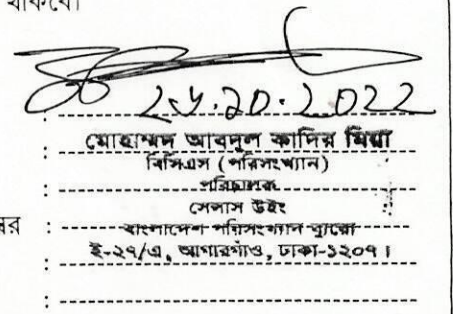 থাকবে।
: মোহাম্মদ আবদুল কাদির মিয়া
বিসিএস (পরিসংখ্যান)
: পরিচালক
সেন্সাস উইং
: বাংলাদেশ পরিসংখ্যান ব্যুরো
ই-২৭/এ, আগারগাঁও, ঢাকা-১২০৭।